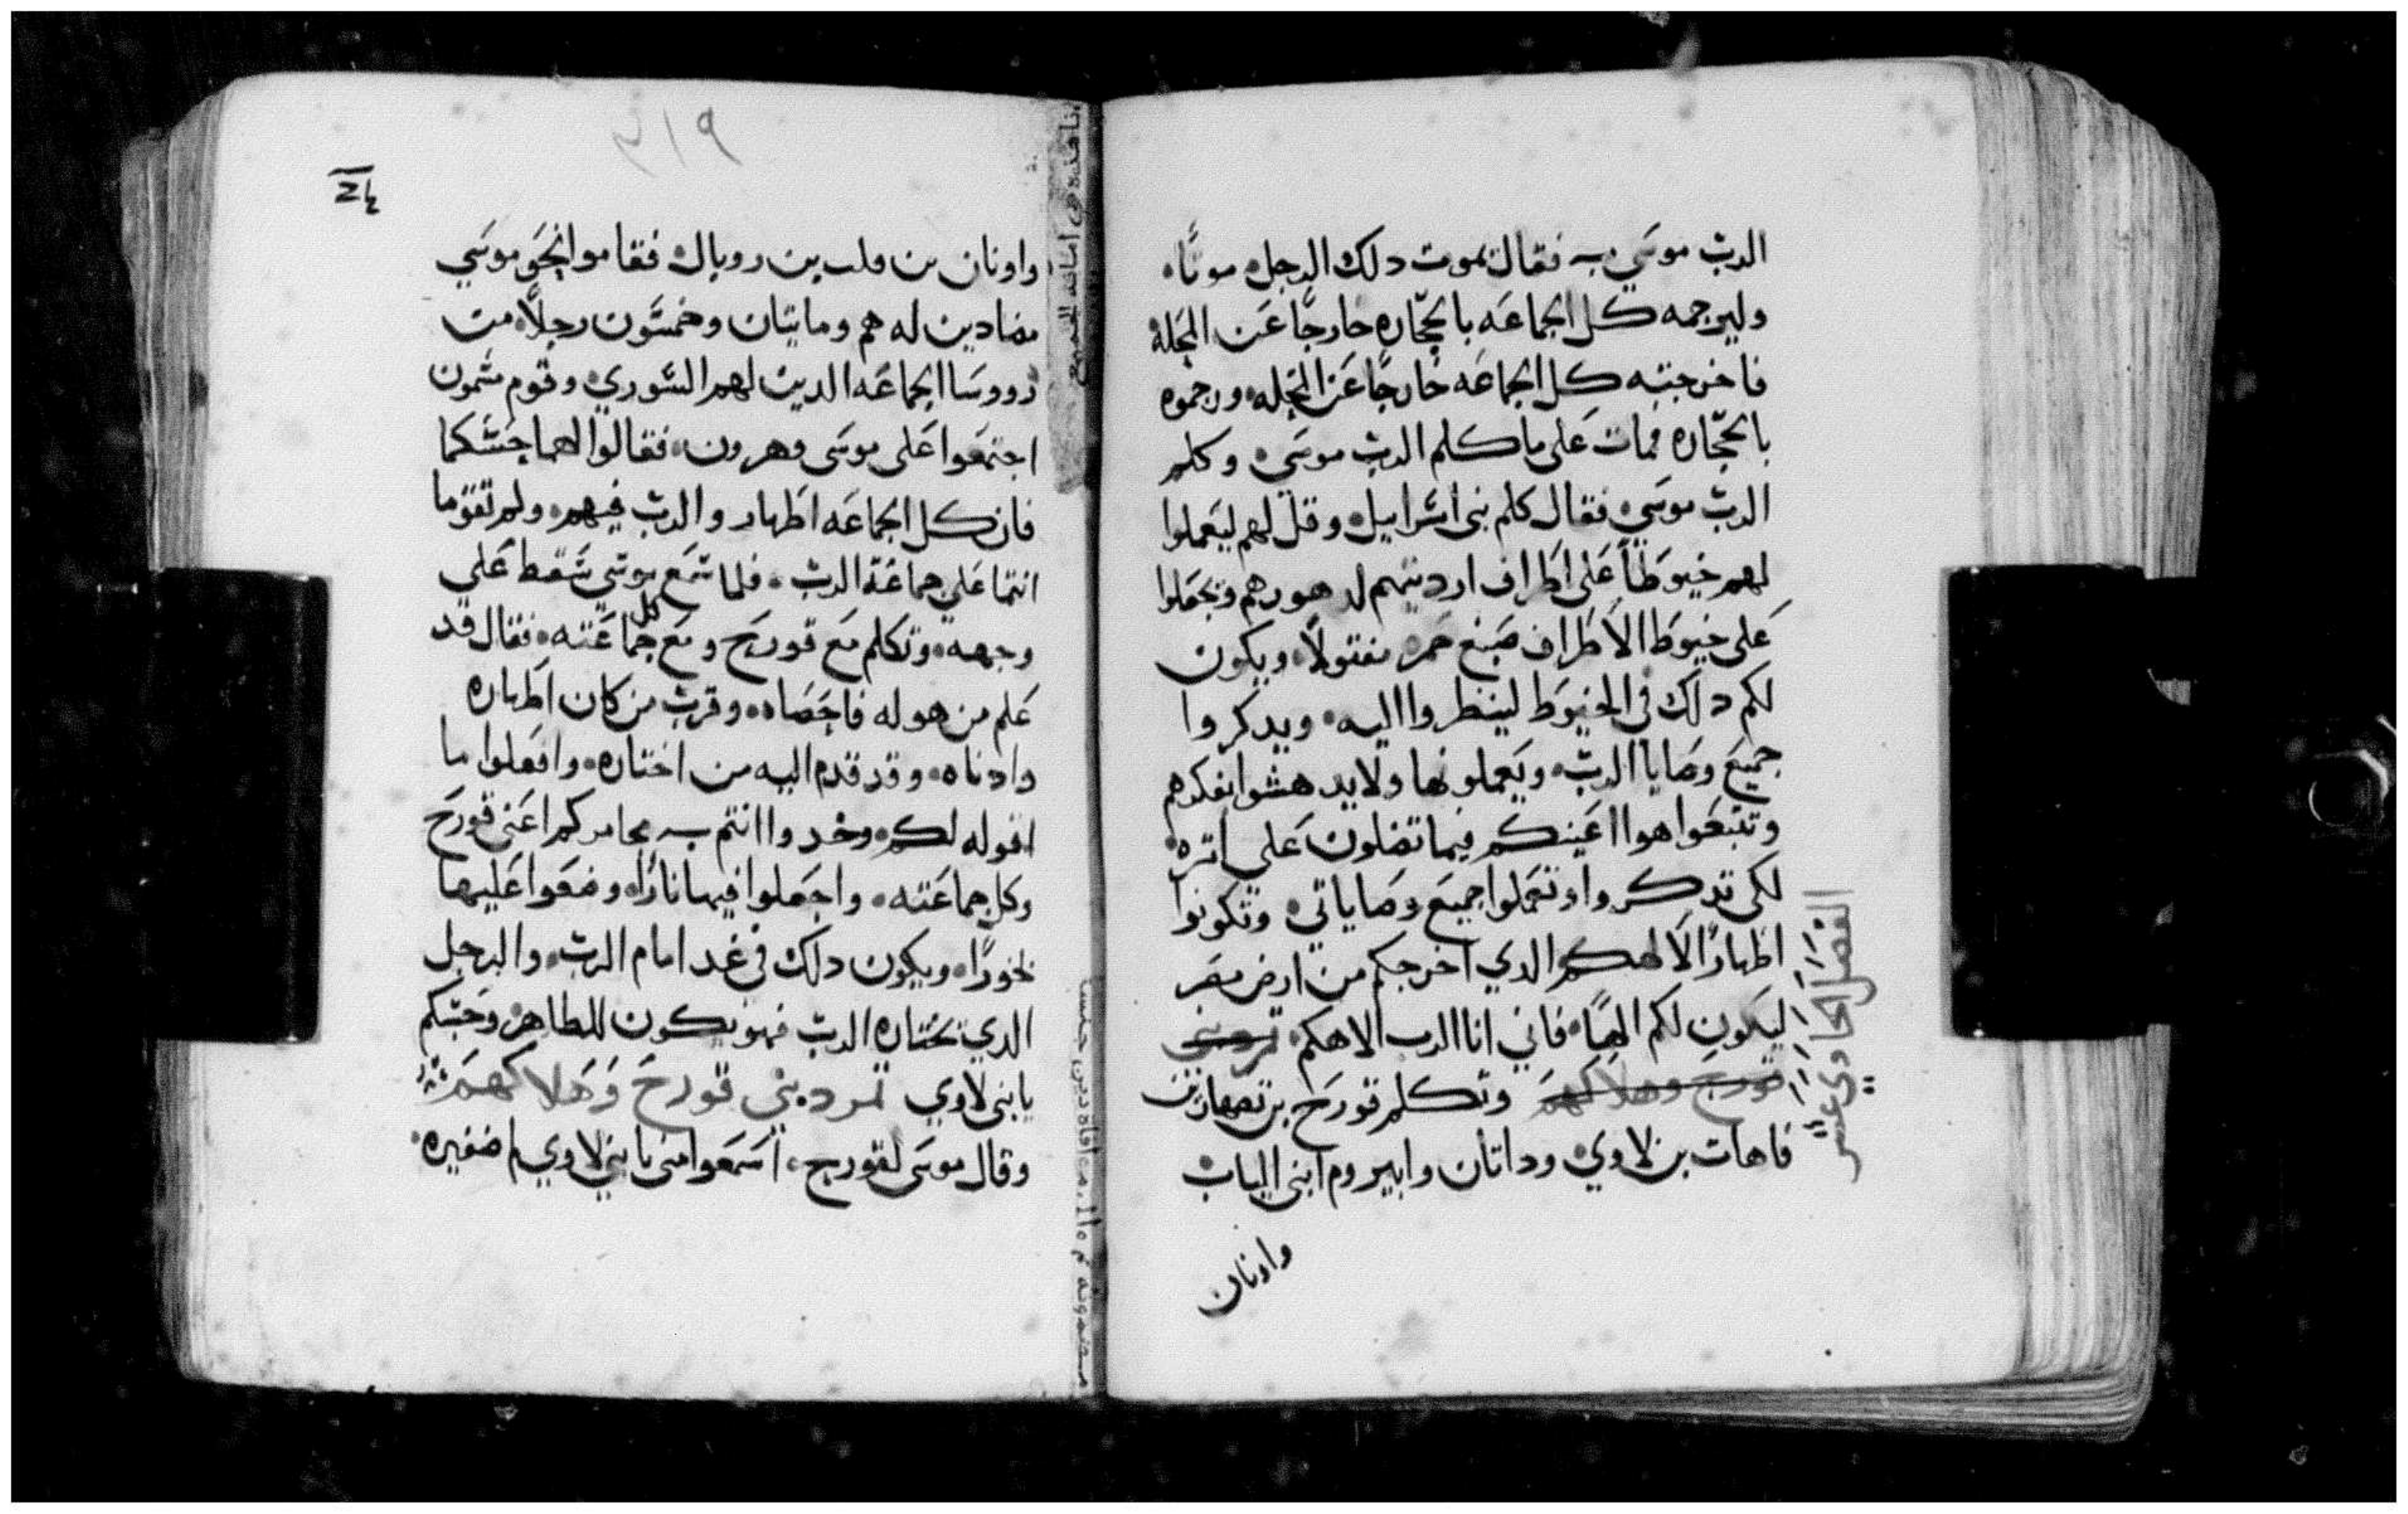 الرب موسي به فقال يموت دلك الرجل موتًا،
وليرجمه كل الجماعه بالحجاره خارجًا عن المحله
فاخرجته كل الجماعه خارجًا عن المحله ورجموه
بالحجاره فمات على ما كلم الرب موسي وكلم
الرب موسي فقال كلم بنى اسراييل وقل لهم ليعملوا
لهم خيوطاً على اطراف ارديتهم لدهورهم وتجعلوا
على خيوط الاطراف صبغ حمره مفتولاً ويكون
لكم دلك فى الخيوط لينظروا اليه ويدكروا
جميع وصايا الرب ويعملونها ولا يدهشوا بفكرهم
وتتبعوا هوا اعينكم فيما تضلون على اتره
لكى تدكروا وتعملوا جميع وصاياتي وتكونوا
اطهارًا لالهكم الدي اخرجكم من ارض مصر
ليكون لكم الهًا فاني انا الرب الاهكم تمرد بني
قورح وهلاكهم وتكلم قورح بن تصهار بن
قاهات بن لاوي وداتان وابيروم ابنى الياب
واونان
الفصل الحادي عشر
٣١٩
واونان بن فلت بن روبال فقاموا نحو موسي
مضادين له هم ومايتان وخمسون رجلاً من
رووسا الجماعه الدين لهم الشوري وقوم يسمون
اجتمعوا على موسى وهرون فقالوا لهما حسبكما
فان كل الجماعه اطهار والرب فيهم ولم تقوما
انتما على جماعة الرب فلما سمع موسي سقط على
وجهه وتكلم مع قورح ومع كل جماعته فقال قد
علم من هو له فاحصاه وقرب من كان اطهاره
وادناه وقد قدم اليه من اختاره وافعلوا ما
اقوله لكم وخدوا انتم به مجامركم اعنى قورح
وكل جماعته واجعلوا فيها نارًا وضعوا عليها
بخورًا ويكون دلك فى غد امام الرب والرجل
الدي يختاره الرب فهو يكون للطاهر وحسبكم
يا بنى لاوي تمرد بني قورح وهلاكهم
وقال موسى لقورح اسمعوا منى يا بني لاوي اصغيره